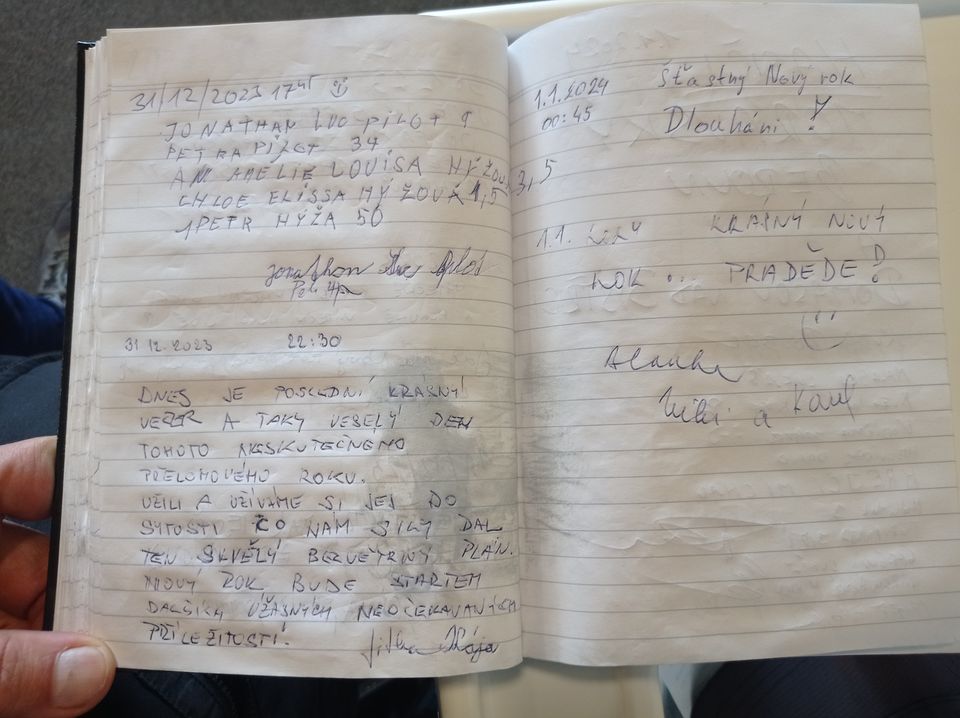 31/12/2023 17⁴⁵
JONATHAN LUC PILOT 9
PETRA PILOT 34
AMELIE LOUISA HÝŽOVÁ 3,5
CHLOE ELISSA HÝŽOVÁ 1,5
PETR HÝŽA 50
Jonathan Luc Pilot
31 12. 2023 22:30
DNES JE POSLEDNÍ KRÁSNÝ
VEČER A TAKY VESELÝ DEN
TOHOTO NESKUTEČNÉHO
PŘELOMOVÉHO ROKU.
UŽILI A UŽÍVÁME SI JEJ DO
SYTOSTI CO NÁM SÍLY DAL
TEN SKVĚLÝ BEZVĚTRNÝ PLÁN.
NOVÝ ROK BUDE STARTEM
DALŠÍCH ÚŽASNÝCH NEOČEKAVANÝCH
PŘÍLEŽITOSTÍ!
Jitka
1.1.2024 Šťastný Nový rok
00:45 Dlouháni!
1.1. KRÁSNÝ NOVÝ
ROK ... PRADĚDE!
a Karel